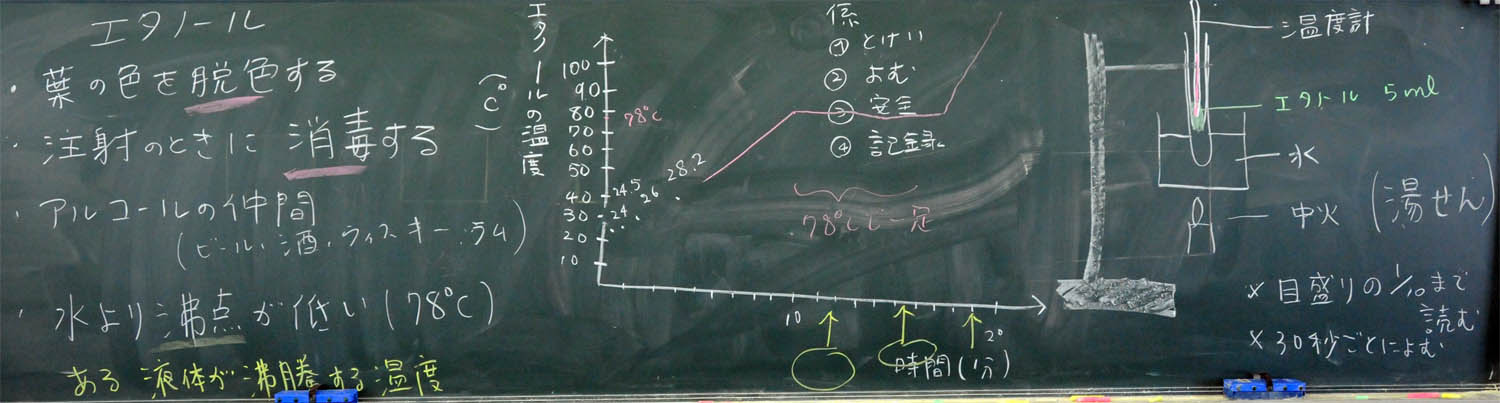 エタノール
・葉の色を脱色する
・注射のときに消毒する
・アルコールの仲間
(ビール、酒、ウィスキー、ラム)
・水より沸点が低い(78℃)
ある液体が沸騰する温度
エタノールの温度
(℃)
100
90
80
70
60
50
40
30
20
10
78℃
24.5
26
28.2
24
78℃で一定
10
20
時間(分)
係
① とけい
② よむ
③ 安全
④ 記録
温度計
エタノール 5ml
水
中火
(湯せん)
× 目盛りの1/10まで
読む
× 30秒ごとによむ